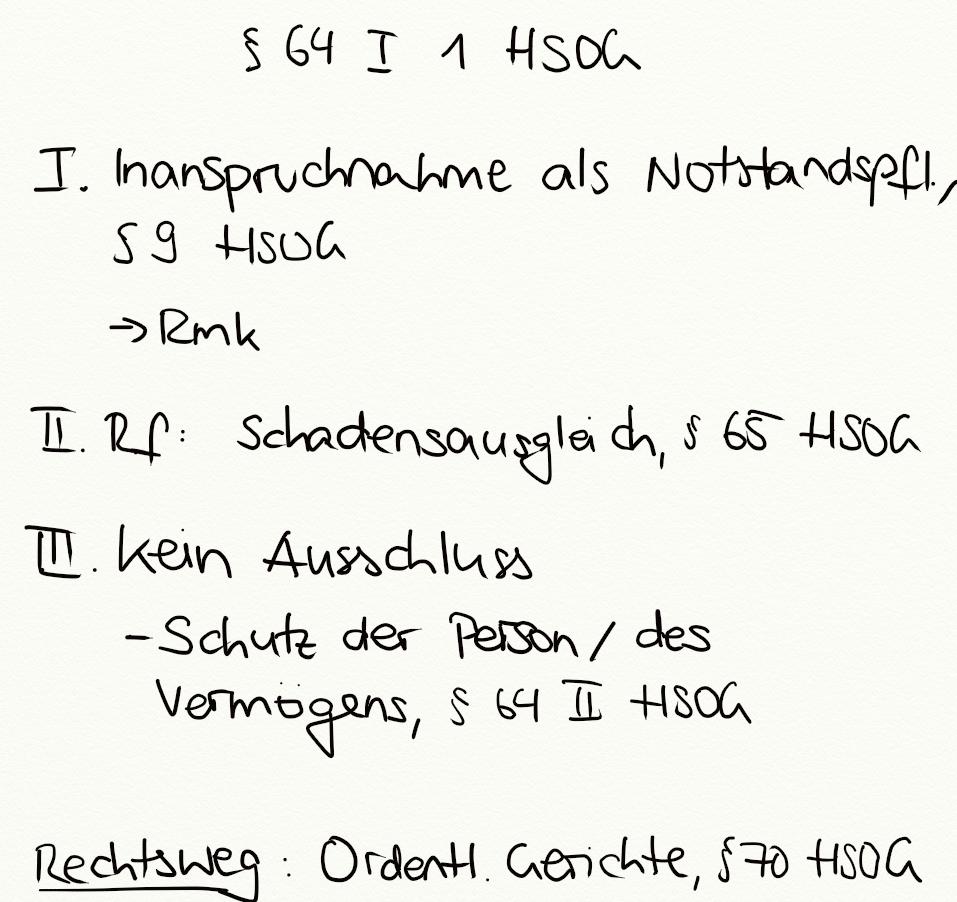 § 64 I 1 HSOG
I. Inanspruchnahme als Notstandspfl.,
§ 9 HSOG
→ Rmk
II. Rf: Schadensausgleich, § 65 HSOG
III. kein Ausschluss
- Schutz der Person / des
Vermögens, § 64 II HSOG
Rechtsweg: Ordentl. Gerichte, § 70 HSOG